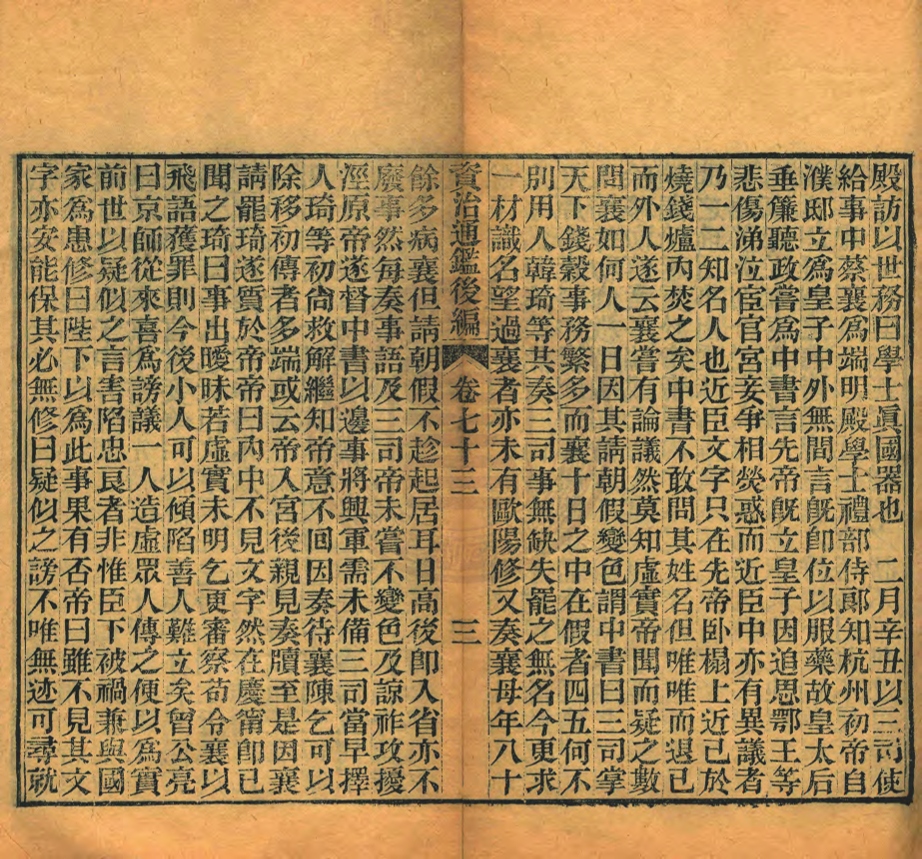 殿訪以世務曰學士眞國器也　二月辛丑以三司使
給事中蔡襄爲端明殿學士禮部侍郞知杭州初帝自
濮邸立爲皇子中外無間言旣卽位以服藥故皇太后
垂簾聽政嘗爲中書言先帝旣立皇子因追思鄂王等
悲傷涕泣宦官宮妾爭相熒惑而近臣中亦有異議者
乃一二知名人也近臣文字只在先帝卧榻上近已於
燒錢爐內焚之矣中書不敢問其姓名但唯唯而退已
而外人遂云襄嘗有論議然莫知虛實帝聞而疑之數
問襄如何人一日因其請朝假變色謂中書曰三司掌
天下錢穀事務繁多而襄十日之中在假者四五何不
別用人韓琦等共奏三司事無缺失罷之無名今更求
一材識名望過襄者亦未有歐陽修又奏襄母年八十
資治通鑑後編　卷七十三　三
餘多病襄但請朝假不趁起居耳日高後卽入省亦不
廢事然每奏事語及三司帝未嘗不變色及諒祚攻擾
涇原帝遂督中書以邊事將興軍需未備三司當早擇
人琦等初尙救解繼知帝意不回因奏待襄陳乞可以
除移初傳者多端或云帝入宮後親見奏牘至是因襄
請罷琦遂質於帝帝曰內中不見文字然在慶甯卽已
聞之琦曰事出曖昧若虛實未明乞更審察苟令襄以
飛語獲罪則今後小人可以傾陷善人難立矣曾公亮
曰京師從來喜爲謗議一人造虛眾人傳之便以爲實
前世以疑似之言害陷忠良者非惟臣下被禍兼與國
家爲患修曰陛下以爲此事果有否帝曰雖不見其文
字亦安能保其必無修曰疑似之謗不唯無迹可尋就